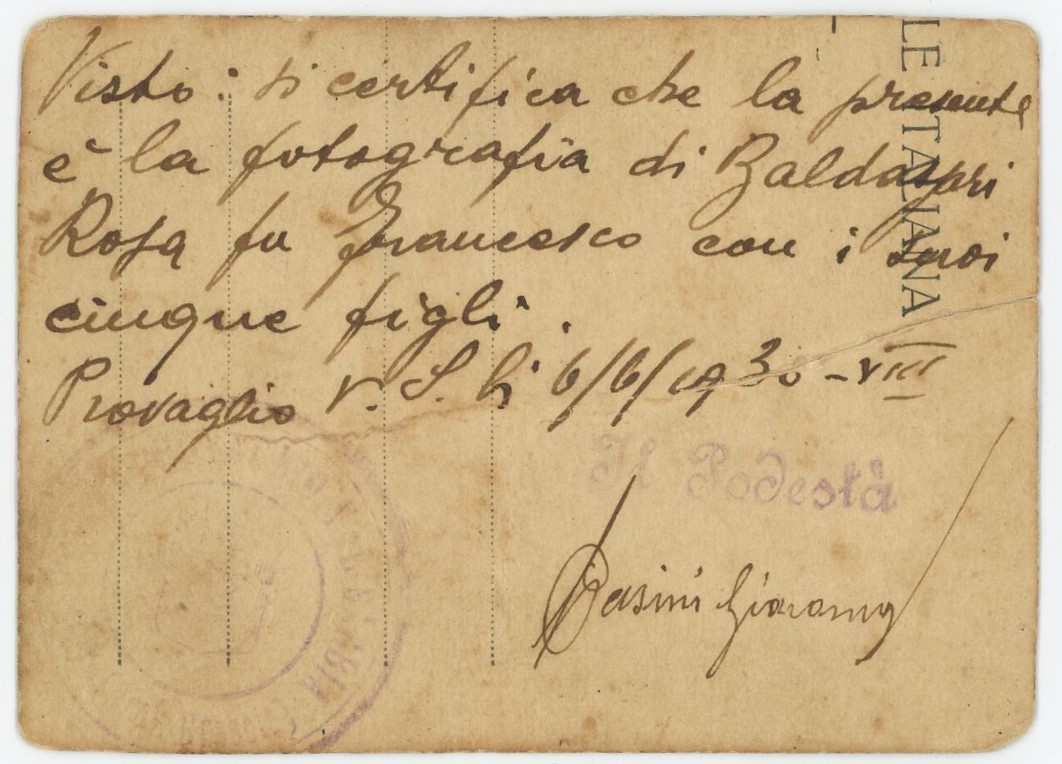 Visto: si certifica che la presente
è la fotografia di Baldassari
Rosa fu Francesco con i suoi
cinque figli.
Provaglio V. S. li 6/6/1930 - VIII
Il Podestà
Giacomo
LE ITALIANA